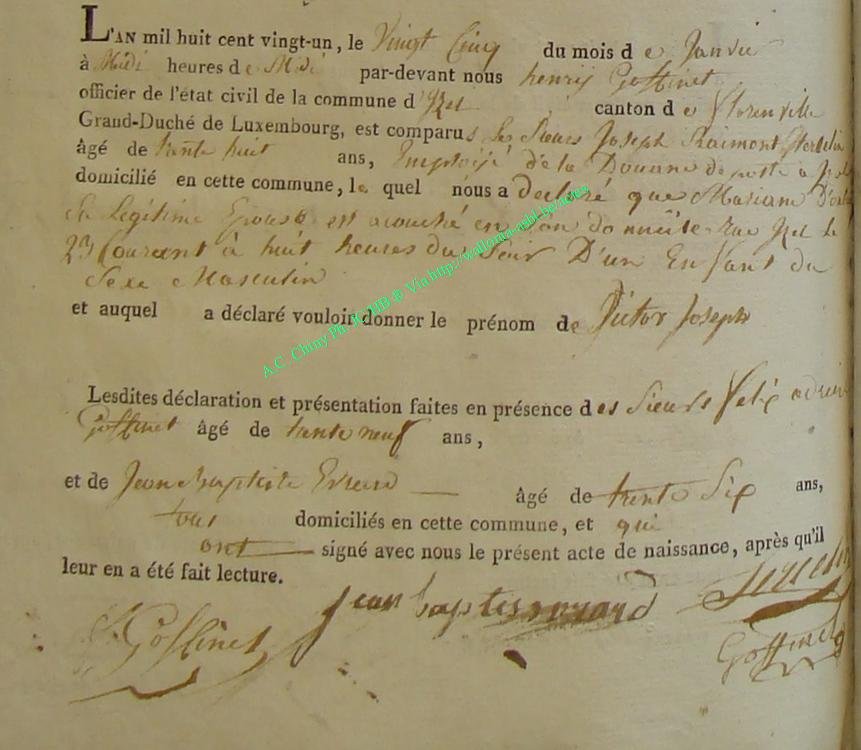 L'AN mil huit cent vingt-un, le Vingt Cinq du mois d e Janvie
à Midi heures d e Midi par-devant nous henrij Goffinet
officier de l'état civil de la commune d'Izel canton d e Florenville
Grand-Duché de Luxembourg, est comparus Le Sieur Joseph Raimont
âgé de trente huit ans, Emploijé de la Douane de poste a Izel
domicilié en cette commune, le quel nous a declaré que Mariane
Sa Legitime Epouse est acouché en Son domicile rue Izel le
23 Courant à huit heures du Soir D'un Enfant du
Sexe Masculin
et auquel a déclaré vouloir donner le prénom de Victor Joseph
Lesdites déclaration et présentation faites en présence des Sieurs Felix adrien
Goffinet âgé de trente neuf ans,
et de Jean Baptiste Evrard âgé de trente Six ans,
tous domiciliés en cette commune, et qui
ont signé avec nous le présent acte de naissance, après qu'il
leur en a été fait lecture.
Jean baptiste evrard
Goffinet Goffinet
A.C. Chiny Ph. JCl.UB.® Via http://wallonia-asbl.be/actes